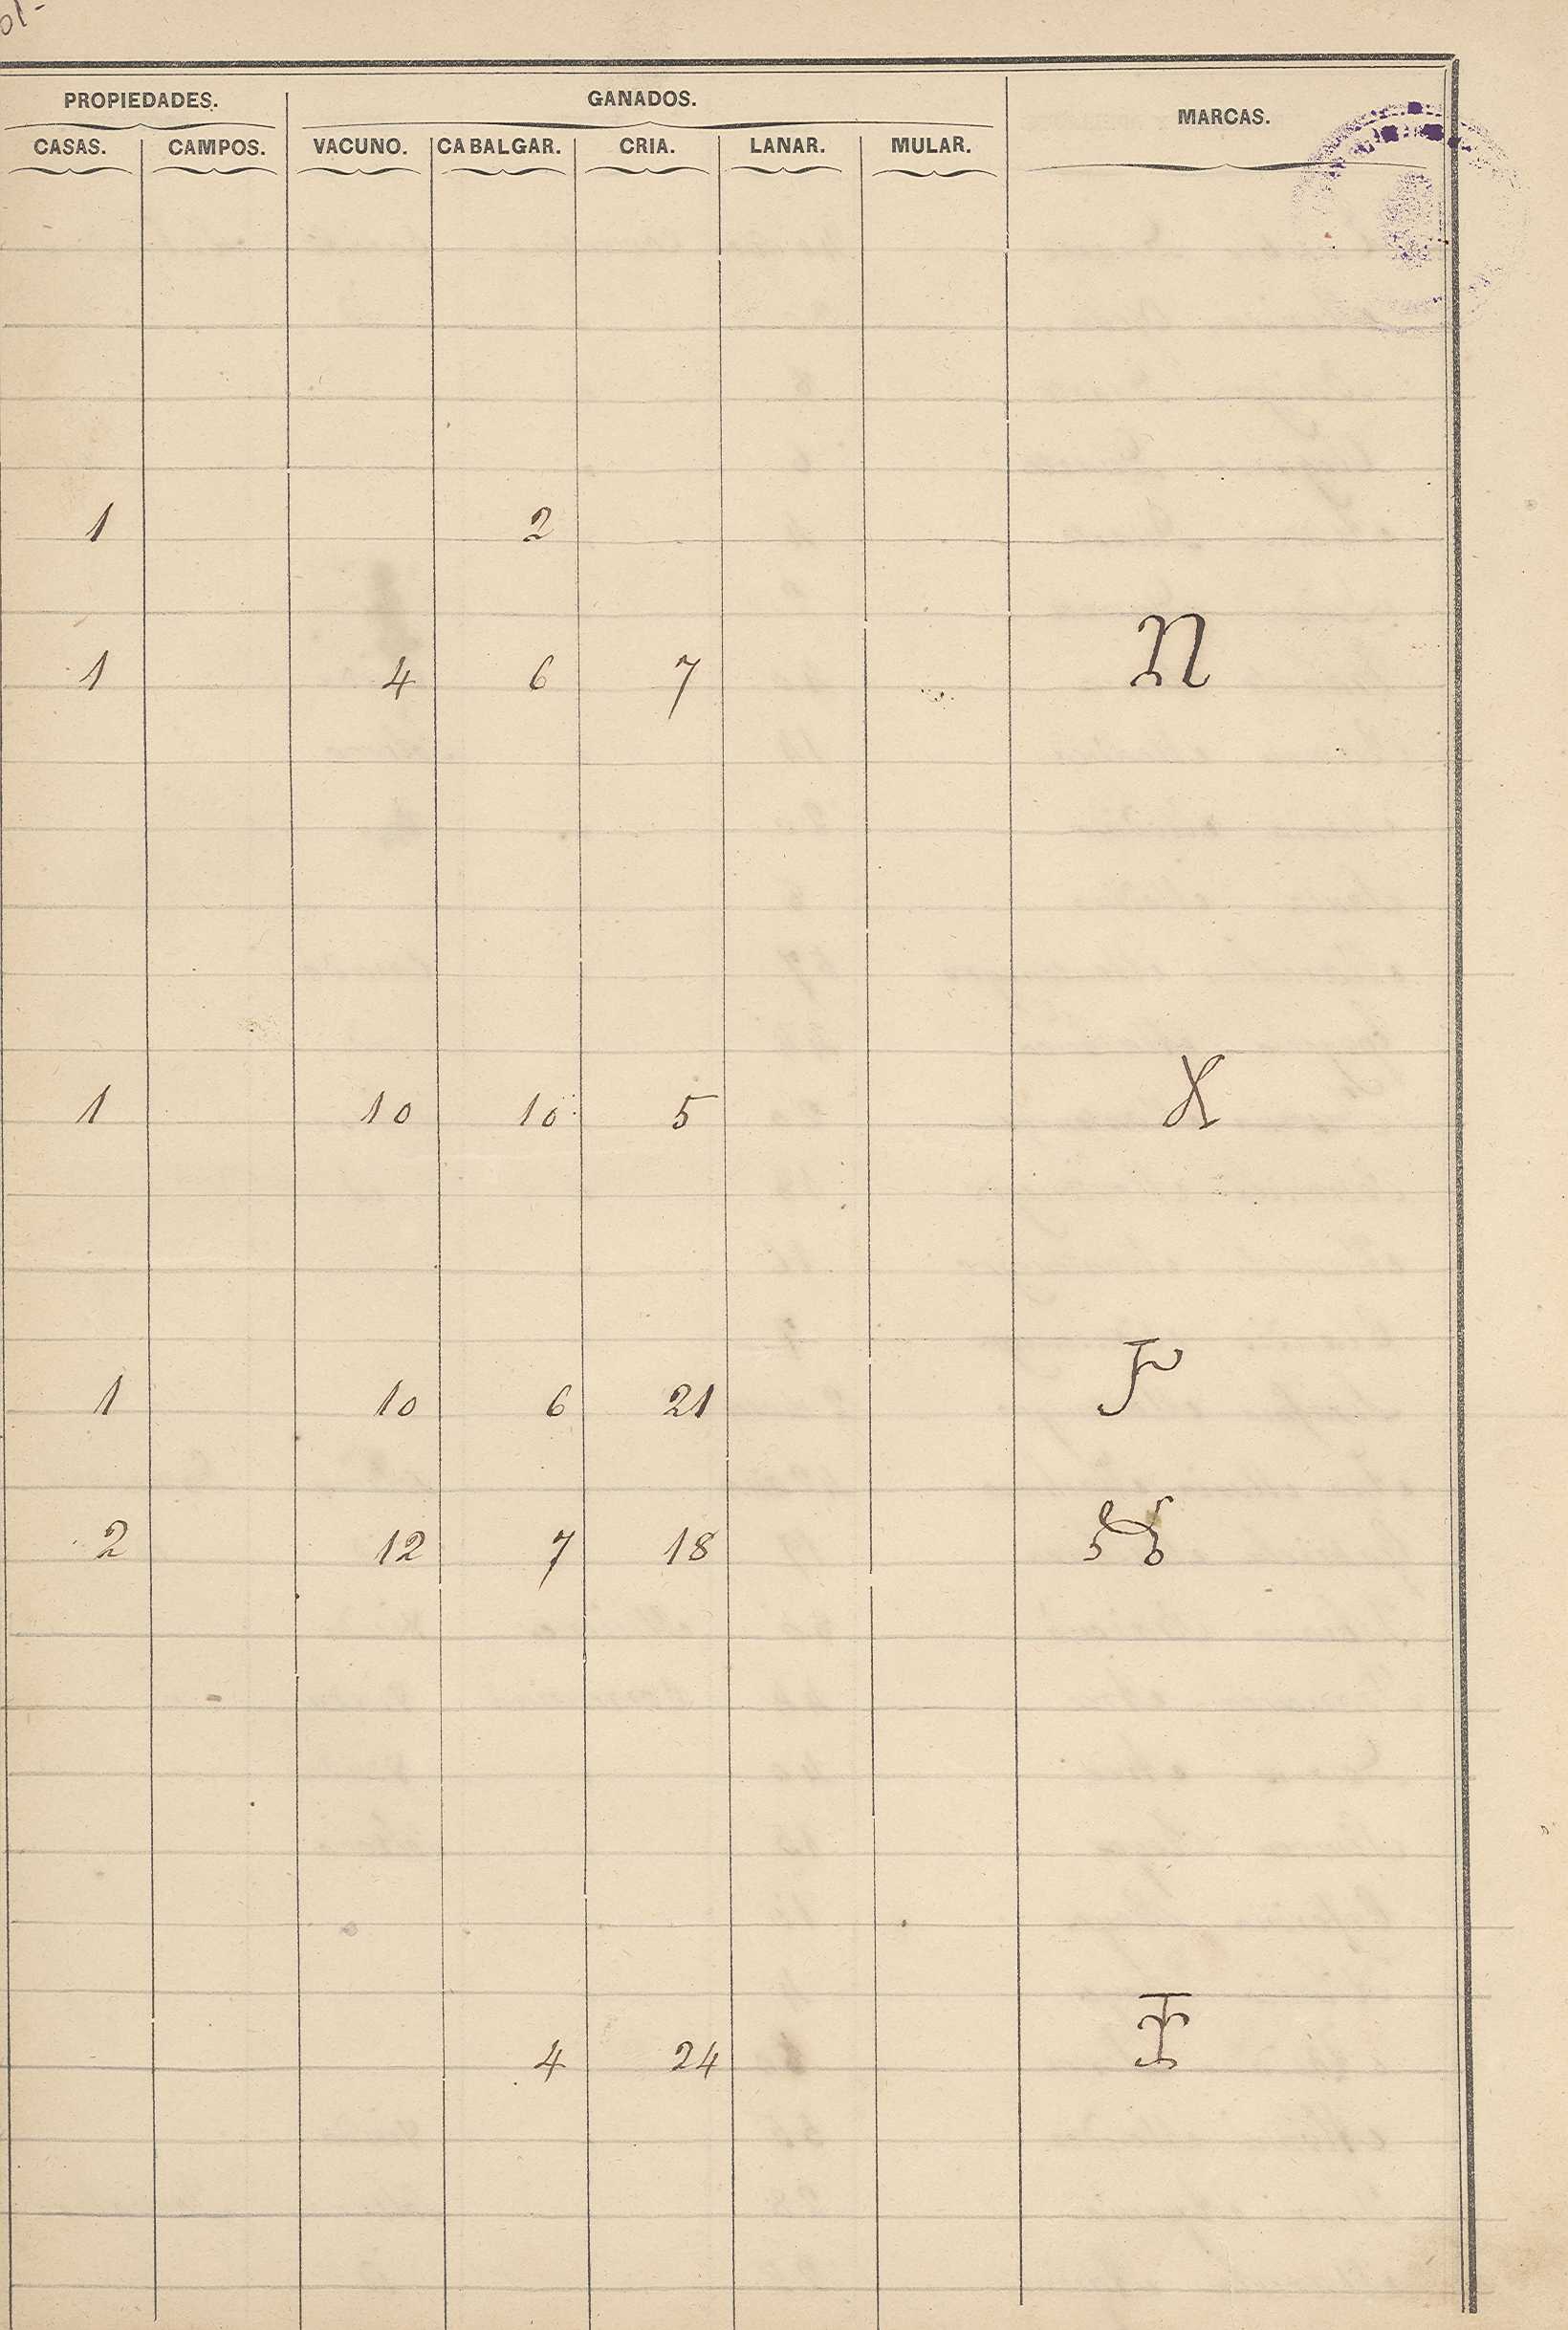 PROPIEDADES. GANADOS. MARCAS.
CASAS. CAMPOS. VACUNO. CABALGAR. CRIA. LANAR. MULAR.
1 2
1 4 6 7 N
1 10 10 5 X
1 10 6 21
2 12 7 18
4 24